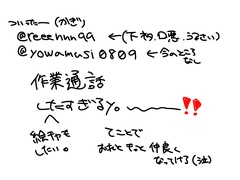 ついったー(かぎ)
@reeennn99 ←(下ネタ、口悪、うるさい)
@yowamusi0809 ←今のところなし
作業通話
したすぎるよ。〜〜〜!!
絵チャも
したい。
てことで
おれと もっと 仲良く
なってけろ(泣)